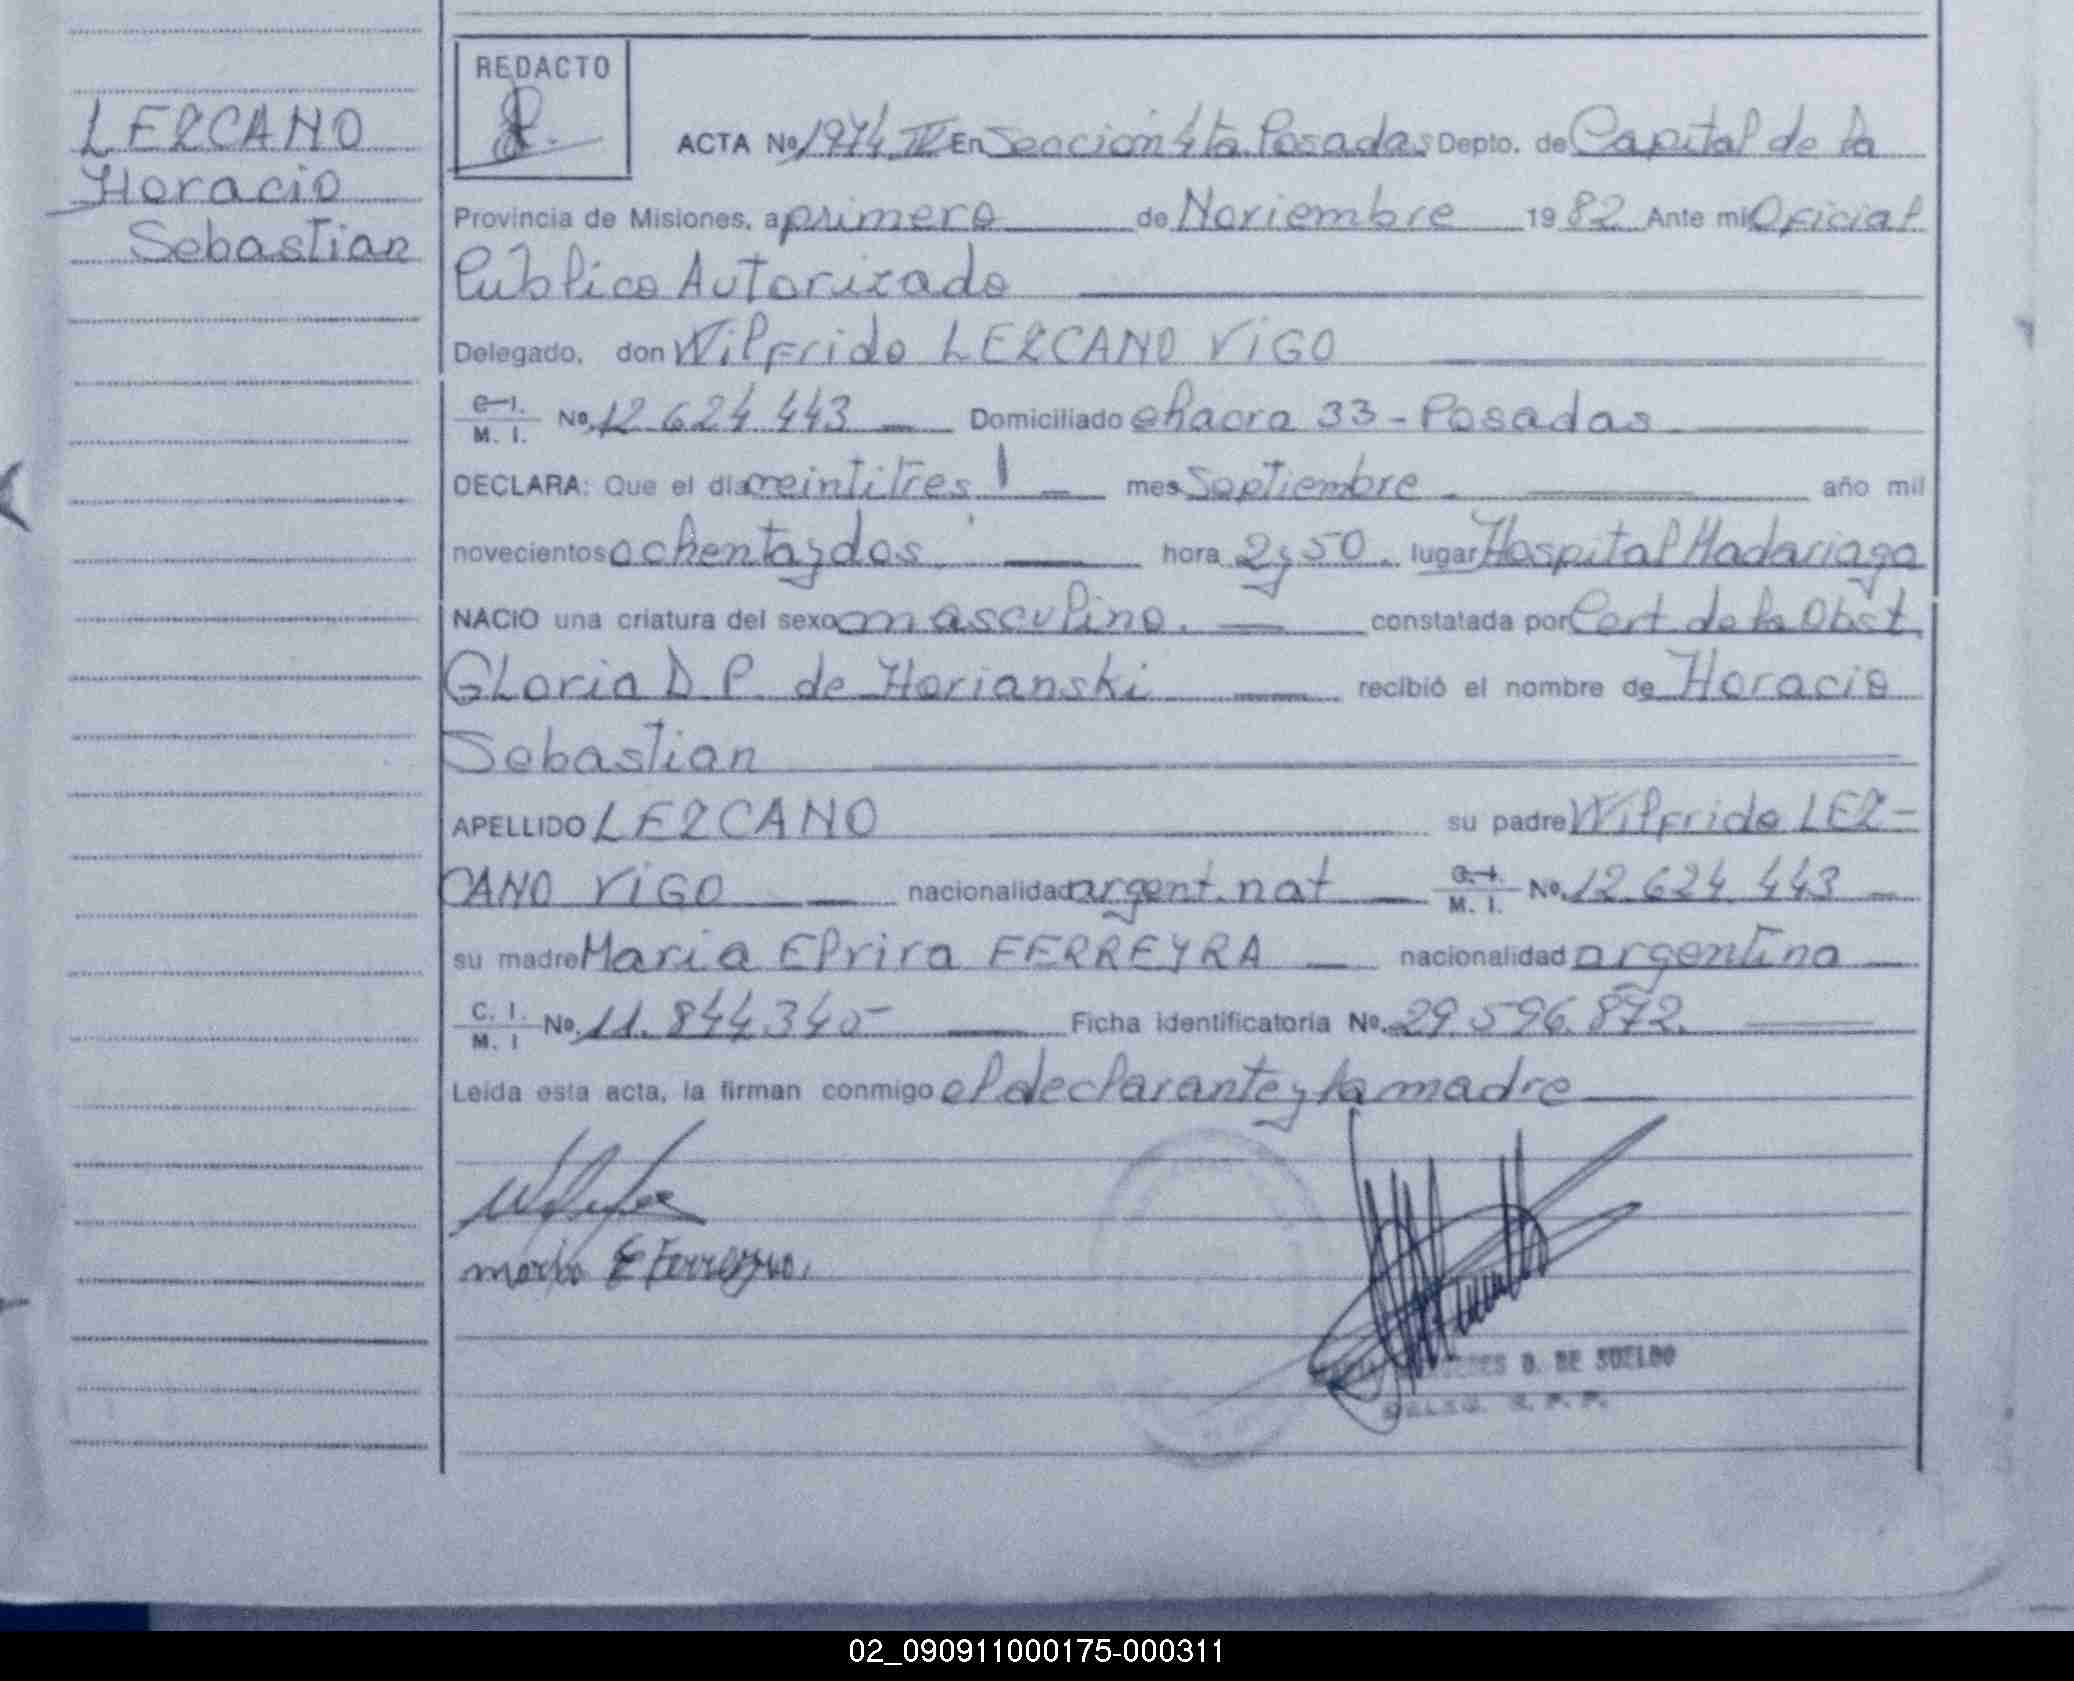 LEZCANO
Horacio
Sebastian
REDACTO
ACTA Nº 1974 IV En Seccion 4ta Posadas Depto. de Capital de la
Provincia de Misiones, a primero de Noviembre 1982 Ante mi Oficial
Público Autorizado
Delegado, don Wilfrido LEZCANO VIGO
C. I. M. I. Nº 12.624.443 Domiciliado chacra 33 - Posadas
DECLARA: Que el día veintitres mes Septiembre año mil
novecientos ochenta y dos hora 2 y 50 lugar Hospital Madariaga
NACIO una criatura del sexo masculino constatada por Cert de la Obst
Gloria D P. de Horianski recibió el nombre de Horacio
Sebastian
APELLIDO LEZCANO su padre Wilfrido LEZ-
CANO VIGO nacionalidad argent. nat C. I. M. I. Nº 12.624.443
su madre Maria Elvira FERREYRA nacionalidad argentina
C. I. M. I Nº 11.844.340 Ficha identificatoria Nº 29.596.872
Leída esta acta, la firman conmigo el declarante y la madre
Maria E Ferreyra
D. DE SUELDO
02_090911000175-000311